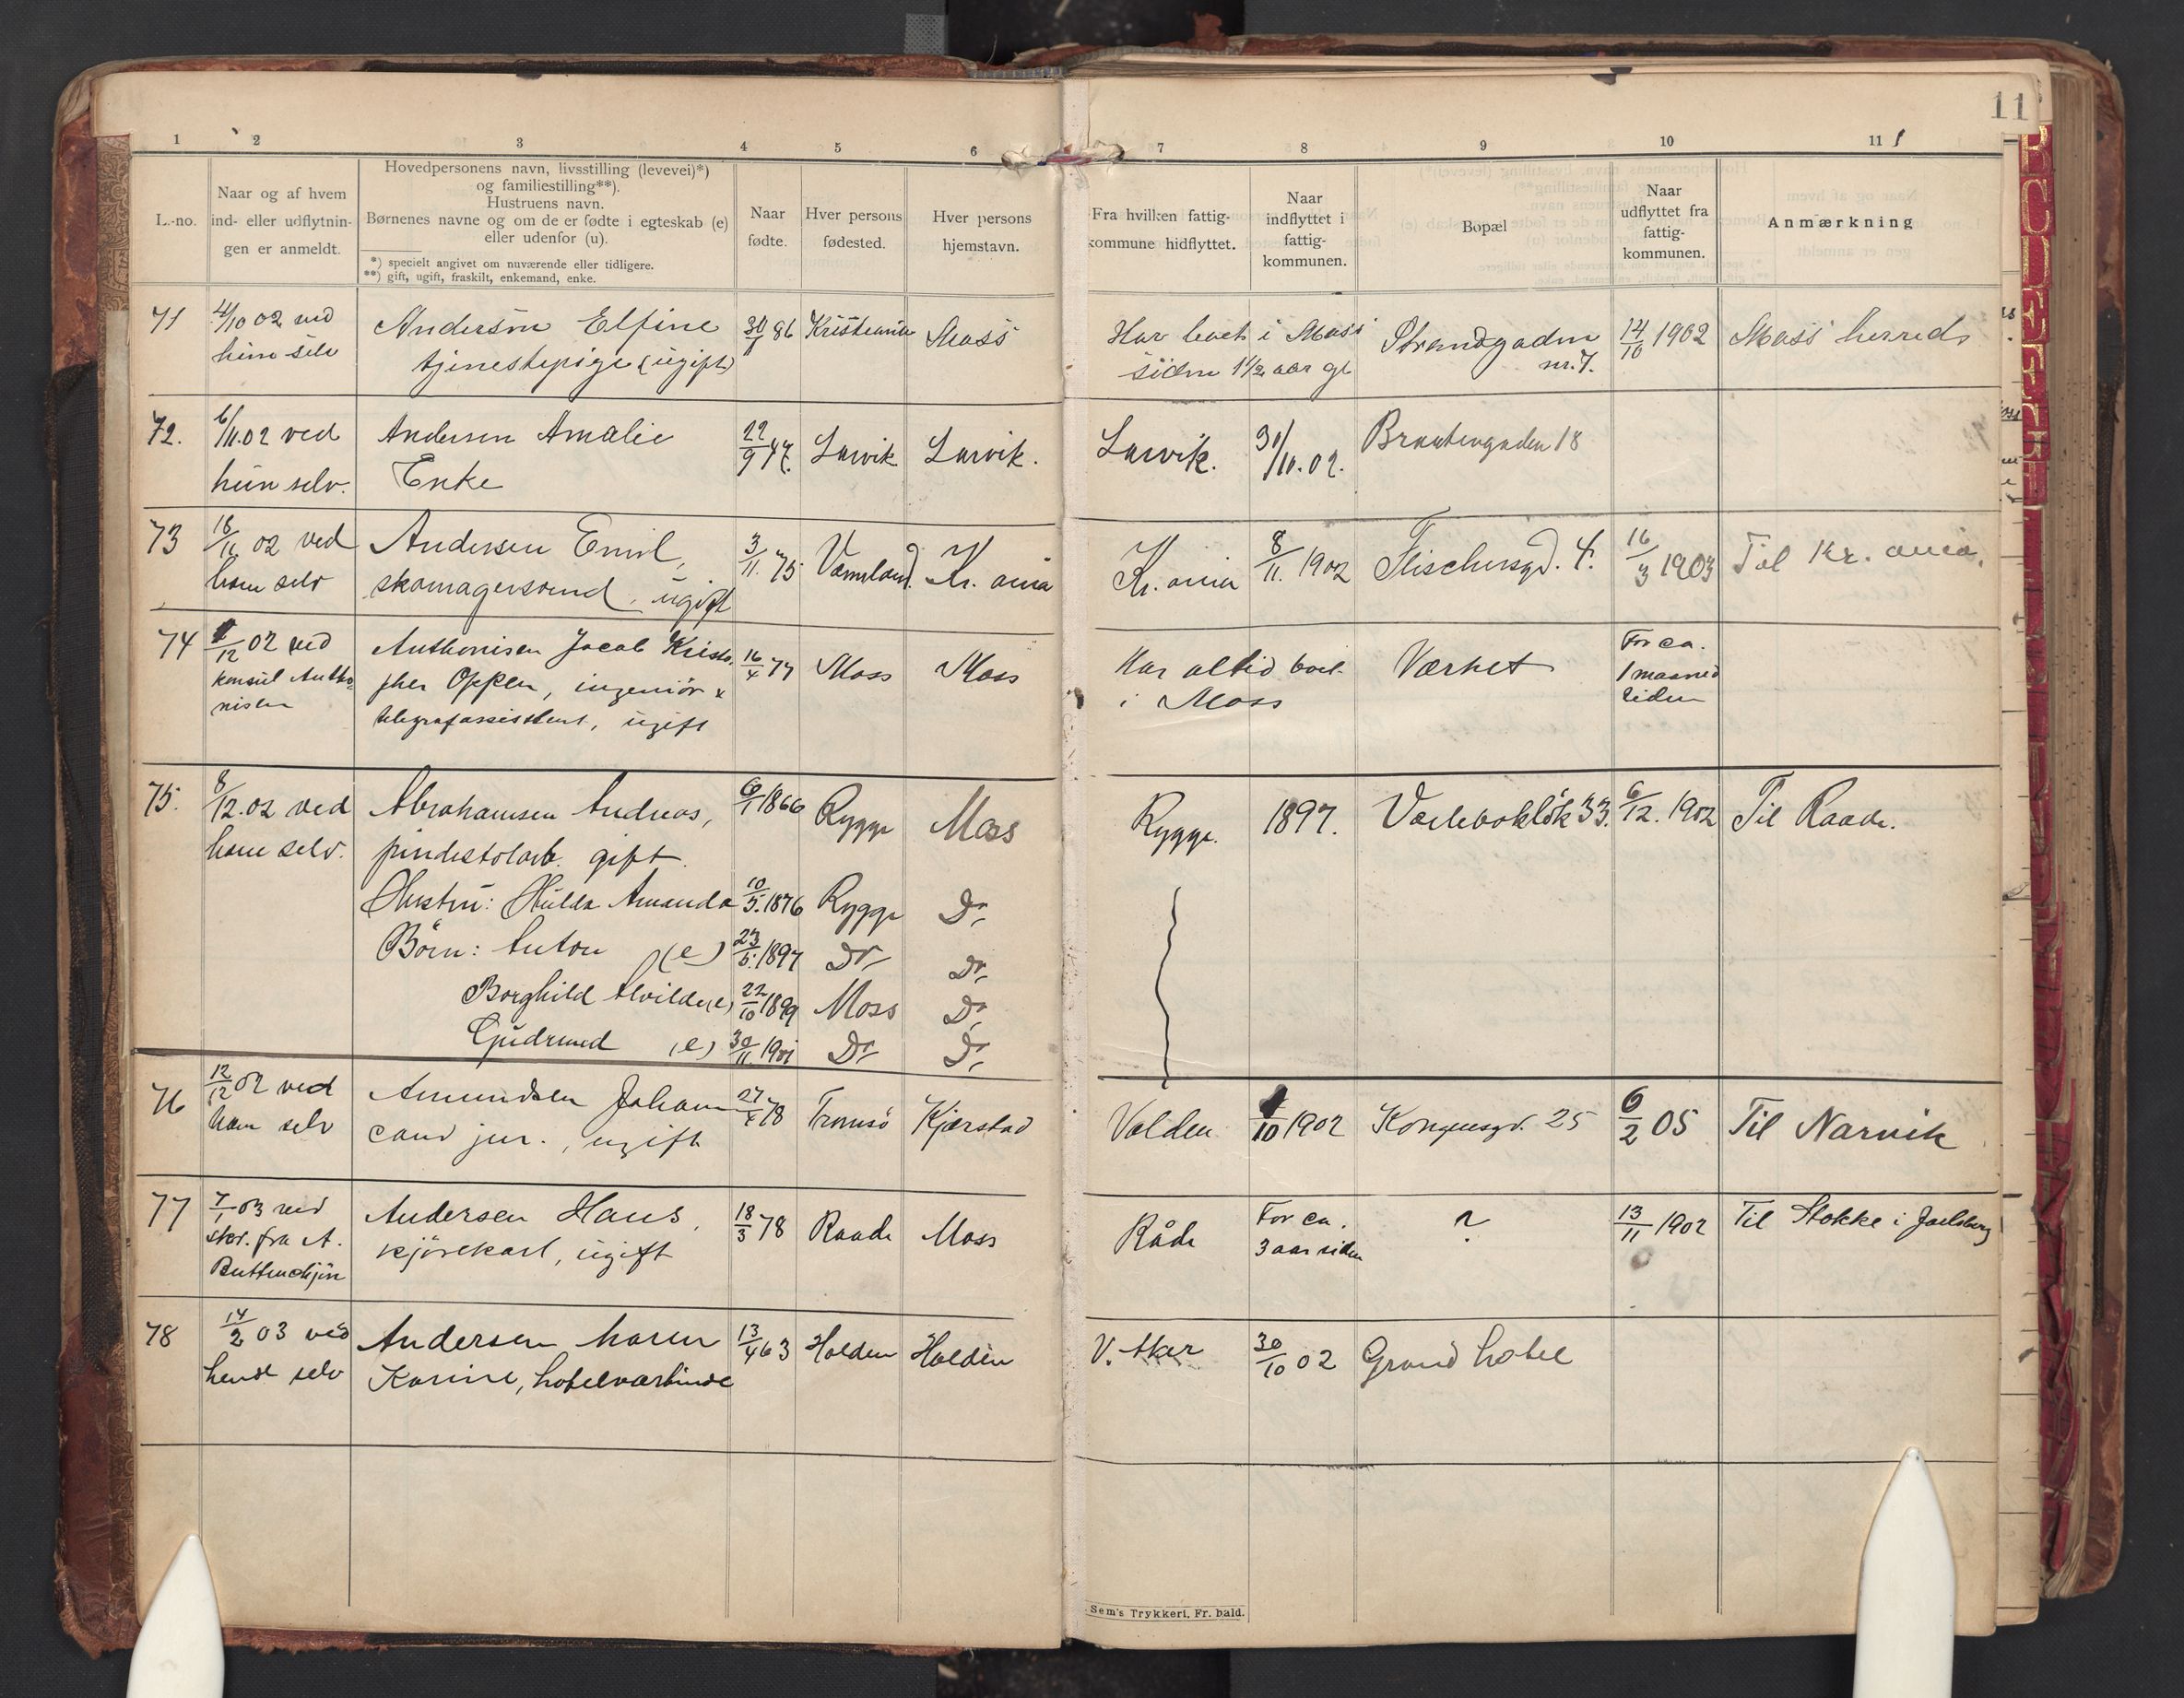 11
1 2 3 4 5 6 7 8 9 10 11
L.-no.
Naar og af hvem
ind- eller udflytnin-
gen er anmeldt.
Hovedpersonens navn, livsstilling (levevei)*)
og familiestilling**).
Hustruens navn.
Børnenes navne og om de er fødte i egteskab (e)
eller udenfor (u).
*) specielt angivet om nuværende eller tidligere.
**) gift, ugift, fraskilt, enkemand, enke.
Naar
fødte.
Hver persons
fødested.
Hver persons
hjemstavn.
Fra hvilken fattig-
kommune hidflyttet.
Naar
indflyttet i
fattig-
kommunen.
Bopæl
Naar
udflyttet fra
fattig-
kommunen.
Anmærkning
71 /10 02 ved Andersen Elfine 86 Kristiania Moss Har boet i Moss Strandgaden 14/10 1902 Moss herred
hun selv tjenestepige (ugift) siden 1 1/2 aar gl nr. 7.
72. 6/11.02 ved Andersen Amalie 22/9 47. Larvik Larvik. Larvik. 31/10.02. Brænterigaden 18
hun selv. Enke
73 18/11 02 ved Andersen Emil, 3/11. 75 Vermland Kr.ania Kr.ania 8/11. 1902 Flischersgd. 4. 16/3 1903 Til Kr.ania.
ham selv skomagersvend, ugift
74 /12 02 ved Anthonisen Jacob Kristo- 16/4 77 Moss Moss Har altid boet Værket For ca.
konsul Antho- pher Oppen, ingeniör & i Moss 1 maaned
nisen telegrafassistent, ugift siden
75. 8/12.02 ved Abrahamsen Andreas, 6/1 1866 Rygge Moss Rygge. 1897. Varlebakløk 33. 6/12. 1902 Til Raade.
ham selv. pindestolarb. gift.
Hustru: Hulda Amanda 10/5. 1876 Rygge Do
Börn: Anton (e) 23/5. 1897 Do Do
Borghild Alvilde (e) 22/10 1899 Moss Do
Gudrund (e) 30/11 1901 Do Do
76 12/12 02 ved Amundsen Johan 27/4 78 Tromsö Kjærstad Volden /10 1902 Kongensgd. 25 6/2 05 Til Narvik
ham selv cand jur., ugift
77 7/1 03 ved Andersen Hans, 18/3 78 Raade Moss Råde For ca. ? 13/11 1902 Til Stokke i Jarlsberg
skr. fra A. kjörekarl, ugift 3 aar siden
78 14/2 03 ved Andersen Maren 13/4 63 Halden Halden V. Aker 30/10 02 Grand hotel
hende selv Karine, hotelværtinde
Sem's Trykkeri, Fr. hald.
B
C
D
E
F